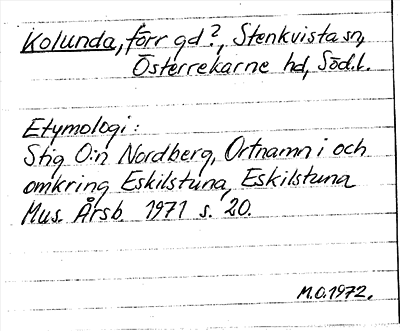 Kolunda, förr gd?, Stenkvista sn,
Österrekarne hd, Södl.
Etymologi:
Stig O:n Nordberg, Ortnamn i och
omkring Eskilstuna, Eskilstuna
Mus. Årsb. 1971 s. 20.
M.O.1972.